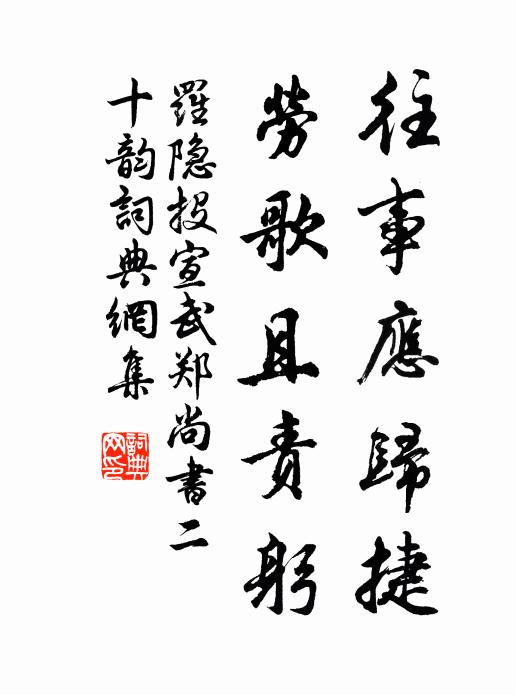 往事應歸捷
勞歌且責躬
羅隐投宣武郑尚書二
十韵詞典網集
詞典網印